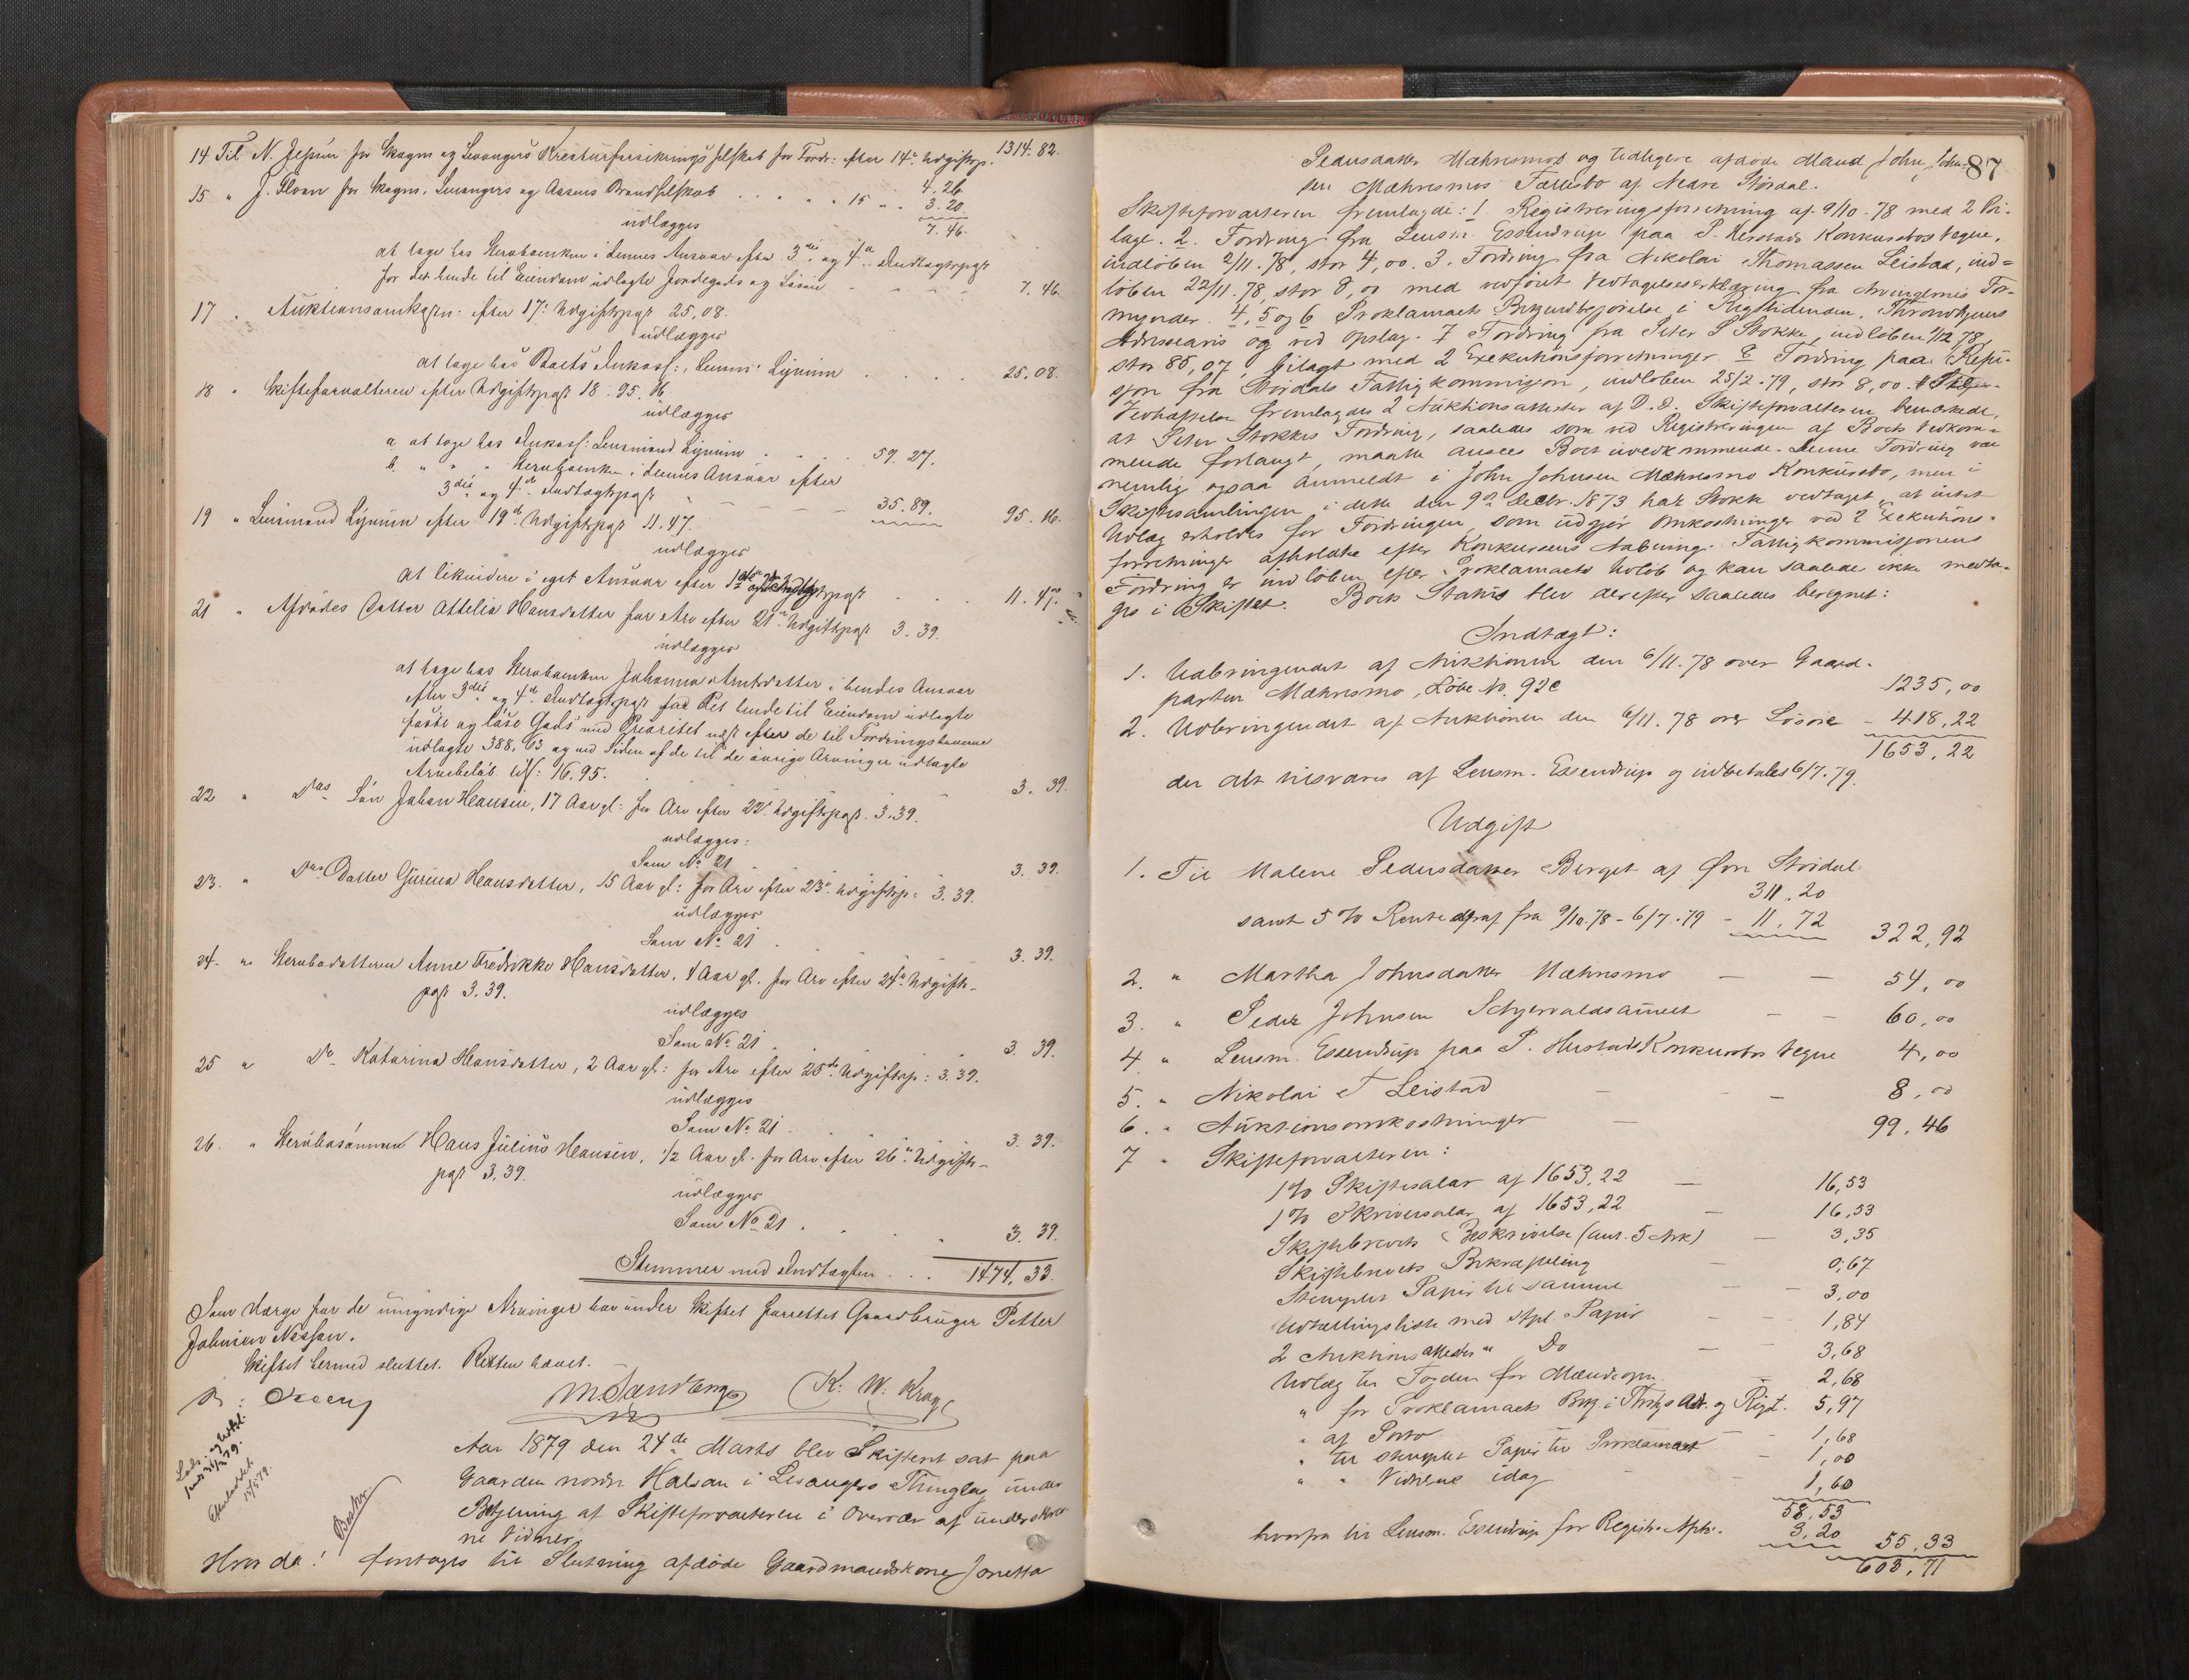 14 Til N. Jelsun for Skogns og Levangers Kreaturforsikringsselskab for Fordr: efter 14de Udgiftsp. 1314. 82.
15 " J. Floan for Skogns, Levangers og Aasens Brandselskab . . . . . 15 " . 4. 26
3. 20
udlægges 7. 46.
at tage hos Stervboenken i dennes Ansvar efter 3die og 4de Indtægtspost
for det hende til Eiendom udlagte Jordegods og Løsøre - - - - 7. 46
17 " Auktionsomkostn: efter 17de Udgiftspost 25,08.
udlægges
at tage hos Boets Inkass:, Lensm: Lynum . . . . 25. 08.
18 " Skifteforvalteren efter Udgiftspost 18 - 95. 16
udlægges
a. at tage hos Inkass: Lensmand Lynum . . . . 59. 27.
b. " " " Stervboenken i dennes Ansvar efter
3die og 4de Indtægtspost - - - - 35. 89. 95. 16.
19 " Lensmand Lynum efter 19de Udgiftspost 11. 47.
udlægges
at likvidere i eget Ansvar efter 1ste og 2den Indtægtspost . . 11. 47.
21 " Afdødes Datter Attelia Hansdatter for Arv efter 21de Udgiftspost 3. 39.
udlægges
at tage hos Stervboenken Johanna Arntsdatter i hendes Ansvar
efter 3die og 4de Indtægtspost for det hende til Eiendom udlagte
faste og løse Gods med Prioritet næst efter de til Fordringshaverne
udlagte 388,63 og ved Siden af de til de øvrige Arvinger udlagte
Arvebeløb tils: 16.95. 3. 39.
22 " Dos Søn Johan Hansen, 17 Aar gl: for Arv efter 22de Udgiftspost 3.39.
udlægges:
Som No 21 3. 39.
23. " Dos Datter Gurina Hansdatter, 15 Aar gl: for Arv efter 23de Udgiftsp: 3. 39.
udlægges
Som No 21 3. 39.
24. " Stervbodatteren Anne Fredrikke Hansdatter, 4 Aar gl. for Arv efter 24de Udgifts-
post 3. 39.
udlægges
Som No 21 3. 39.
25 " Do Katarina Hansdatter, 2 Aar gl: for Arv efter 25de Udgiftsp: 3. 39.
udlægges
Som No 21 3. 39.
26. " Stervbosønnen Hans Julius Hansen, 1/2 Aar gl. for Arv efter 26de Udgifts-
post 3. 39.
udlægges
Som No 21 . . . 3. 39.
Stemmer med Indtægten . . . 1474, 33.
Som Værge for de umyndige Arvinger har under Skiftet forrettet Gaardbruger Petter
Johnsen Nossan.
Skiftet hermed sluttet. Retten hævet.
M. Sandberg K. W. Krog
Aar 1879 den 24de Marts blev Skifteret sat paa
Gaarden nordre Halsan i Levangers Thinglag under
Betjening af Skifteforvalteren i Overvær af underskrev
ne Vidner
Beskr
Hvor da: foretoges til Slutning afdøde Gaardmandskone Jonetta
87
Pedersdatter Mæhresmos og tidligere afdøde Mand John John-
sen Mæhresmos Fællesbo af Nedre Størdal.
Skifteforvalteren fremlagde: 1. Registreringsforretning af 9/10-78 med 2 Bi-
lage. 2. Fordring fra Lensm. Essendrup paa P. Hustads Konkursbos Vegne,
indløben 2/11.78, stor 4,00. 3. Fordring fra Nikolai Thomassen Leistad, ind-
løben 22/11.78, stor 8,00 med vedført Vedtagelseserklæring fra Arvingernes For-
mynder. 4, 5 og 6 Proklamaets Bekjendtgjørelse i Rigstidenden, Throndhjems
Adresseavis og ved Opslag. 7 Fordring fra Peter S Stokke, indløben 1/12 78,
stor 85,07, bilagt med 2 Exekutionsforretninger. 8 Fordring paa Refu-
sjon fra Stordals Fattigkommisjon, indløben 25/2-79, stor 8,00.
Vedhæftelse fremlagdes 2 Auktionsattester af D. D. Skifteforvalteren bemærkede,
at Peter Stokkes Fordring, saaledes som ved Registreringen af Boets Vedkom-
mende forlangt, maatte ansees Boet uvedkommende. Denne Fordring var
nemlig ogsaa anmeldt i John Johnsen Mæhresmo Konkursbo, men i
Skiftesamlingen i dette den 9de Decbr. 1873 har Stokke vedtaget, at intet
Udlæg erholdes for Fordringen, som udgjør Omkostninger ved 2 Exekutions-
forretninger afholdte efter Konkursens Aabning. Fattigkommisjonens
Fordring er indløben efter Proklamaets Udløb og kan saaledes ikke medta-
ges i Skiftet. Boets Status blev derefter saaledes beregnet:
Indtægt:
1. Udbringendet af Auktionen den 6/11.78 over Gaard-
parten Mæhresmo, Løbe No. 92c 1235,00
2. Udbringendet af Auktionen den 6/11.78 over Løsøre - 418,22
1653,22
der Alt tilsvares af Lensm. Essendrup og indbetales 6/7.79.
Udgift
1. Til Malene Pedersdatter Berget af Øvre Stördal
311.20
samt 5 % Rente deraf fra 9/10.78 - 6/7.79 - 11,72 322,92
2. " Martha Johnsdatter Mæhresmo - - 54,00
3. " Peder Johnsen Schjervoldsaunet - - 60,00
4 " Lensm. Essendrup paa P. Hustads Konkursbos Vegne 4,00
5. " Nikolai T Leistad - - 8,00
6. " Auktionsomkostninger - 99.46
7 " Skifteforvalteren:
1% Skiftesalær af 1653,22 - 16,53
1% Skriversalær af 1653,22 - 16,53
Skiftebrevets Beskrivelse (ant. 5 Ark) - 3,35
Skiftebrevets Bekræftelse - 0,67
Stemplet Papir til samme - 3,00
Udtællingsliste med stpl. Papir - - 1,84
2 Auktionsattester " Do - - 3,68
Udlæg til Fogden for Mændsopn. - 2,68
" for Proklamaets Bekj. i Thrhjs Adr. og Rigst. 5,97
" af Porto - 1,68
" til stemplet Papir til Proklamaet - 1,00
" " Vidnerne idag - 1,60
58,53
hvorfra til Lensm. Essendrup for Registr. Afh. 3,20 55,33
603,71